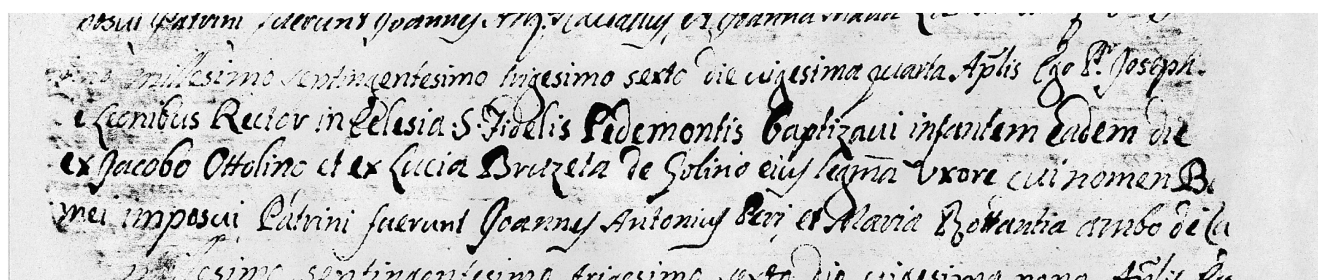 Patrini fuerunt Joannes et Joanna Maria
millesimo sentingentesimo trigesimo sexto die vigesima quarta Aplis Ego Pr. Joseph
Leonibus Rector in Eclesia S. Fidelis Pedemontis baptizavi infantem eadem die
ex Jacobo Ottolino et ex Lucia Bruzela de Golino eius legma Uxore cui nomen
mei imposui Patrini fuerunt Joannes Antonius Peri et Maria Bottantia ambo de
millesimo sentingentesimo trigesimo sexto die vigesima nona Aplis